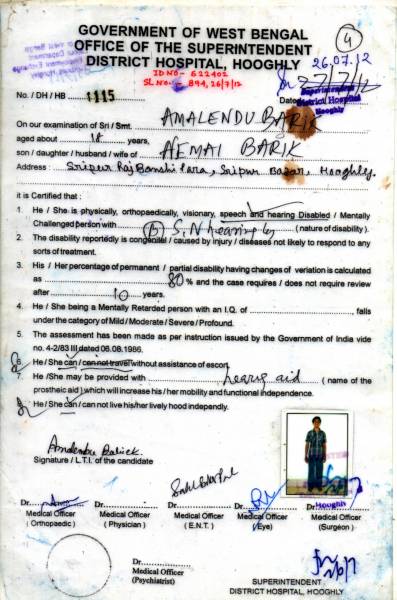 GOVERNMENT OF WEST BENGAL
OFFICE OF THE SUPERINTENDENT
DISTRICT HOSPITAL, HOOGHLY
4
26.07.12
ID NO - 622402
SL NO. - 894, 26/7/12
No. / DH / HB 1115
Dated 27/7/12
Superintendent
District Hospital
Hooghly
On our examination of Sri / Smt. AMALENDU BARIK
aged about 18 years,
son / daughter / husband / wife of NEMAI BARIK
Address : Sripur Raj Banshi Para, Sripur Bazar, Hooghly.
it is Certified that :
1. He / She is physically, orthopaedically, visionary, speech and hearing Disabled / Mentally
Challenged person with (B) S.N hearing (nature of disability).
2. The disability reportedly is congenital / caused by injury / diseases not likely to respond to any
sorts of treatment.
3. His / Her percentage of permanent / partial disability having changes of veriation is calculated
as 80 % and the case requires / does not require review
after 10 years.
4. He / She being a Mentally Retarded person with an I.Q. of , falls
under the category of Mild / Moderate / Severe / Profound.
5. The assessment has been made as per instruction issued by the Government of India vide
no. 4-2/83 III dated 06.08.1986.
6. He / She can / can not travel without assistance of escort.
7. He /She may be provided with hearing aid ( name of the
prostheic aid ) which will increase his / her mobility and functional independence.
8. He / She can / can not live his/her lively hood independly.
Amalendu Barick
Signature / L.T.I. of the candidate
Hooghly
Dr. Dr. Dr. Dr. Dr.
Medical Officer Medical Officer Medical Officer Medical Officer Medical Officer
( Orthopaedic ) ( Physician ) ( E.N.T. ) (Eye) (Surgeon )
Dr.
Medical Officer
(Psychiatrist)
SUPERINTENDENT
DISTRICT HOSPITAL, HOOGHLY